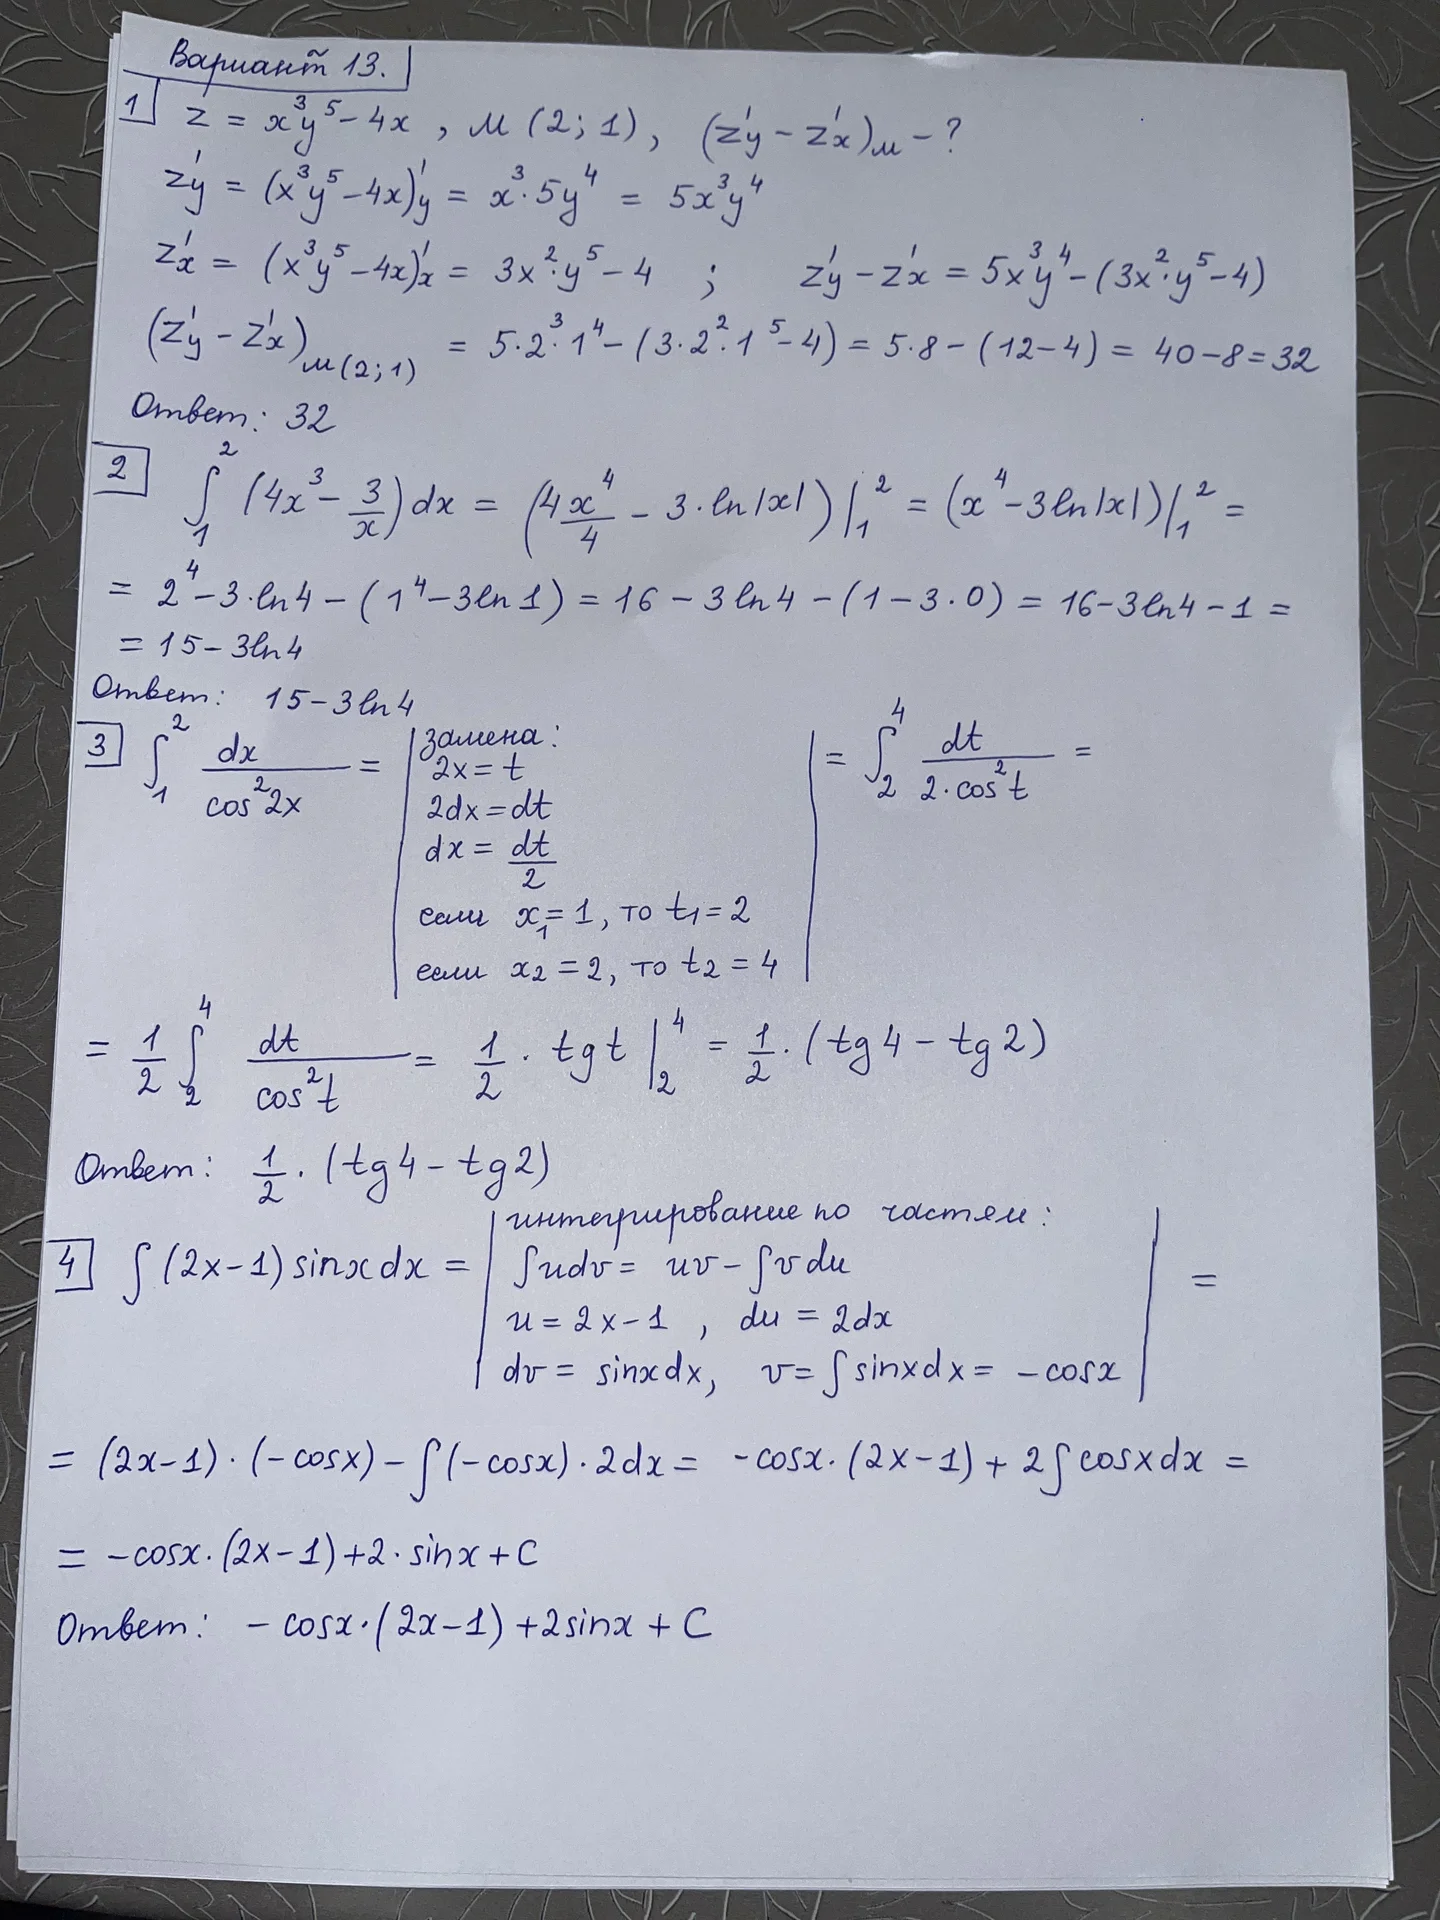 Вариант 13.
1 z = x³y⁵ - 4x , M (2; 1), (z'y - z'x)м - ?
z'y = (x³y⁵ - 4x)'y = x³ · 5y⁴ = 5x³y⁴
z'x = (x³y⁵ - 4x)'x = 3x² · y⁵ - 4 ; z'y - z'x = 5x³y⁴ - (3x² · y⁵ - 4)
(z'y - z'x)м(2;1) = 5·2³·1⁴ - (3·2²·1⁵ - 4) = 5·8 - (12 - 4) = 40 - 8 = 32
Ответ: 32
2 ∫₁² (4x³ - 3/x) dx = (4x⁴/4 - 3·ln|x|)|₁² = (x⁴ - 3ln|x|)|₁² =
= 2⁴ - 3·ln4 - (1⁴ - 3ln1) = 16 - 3ln4 - (1 - 3·0) = 16 - 3ln4 - 1 =
= 15 - 3ln4
Ответ: 15 - 3ln4
3 ∫₁² dx/cos²2x = | замена: | = ∫₂⁴ dt/(2·cos²t) =
2x = t
2dx = dt
dx = dt/2
если x₁ = 1, то t₁ = 2
если x₂ = 2, то t₂ = 4
= 1/2 ∫₂⁴ dt/cos²t = 1/2 · tg t |₂⁴ = 1/2 · (tg4 - tg2)
Ответ: 1/2 · (tg4 - tg2)
4 ∫ (2x - 1) sinx dx = | интегрирование по частям: | =
∫udv = uv - ∫v du
u = 2x - 1 , du = 2dx
dv = sinx dx, v = ∫ sinx dx = -cosx
= (2x - 1) · (-cosx) - ∫ (-cosx) · 2dx = -cosx · (2x - 1) + 2∫ cosx dx =
= -cosx · (2x - 1) + 2 · sinx + C
Ответ: - cosx · (2x - 1) + 2sinx + C